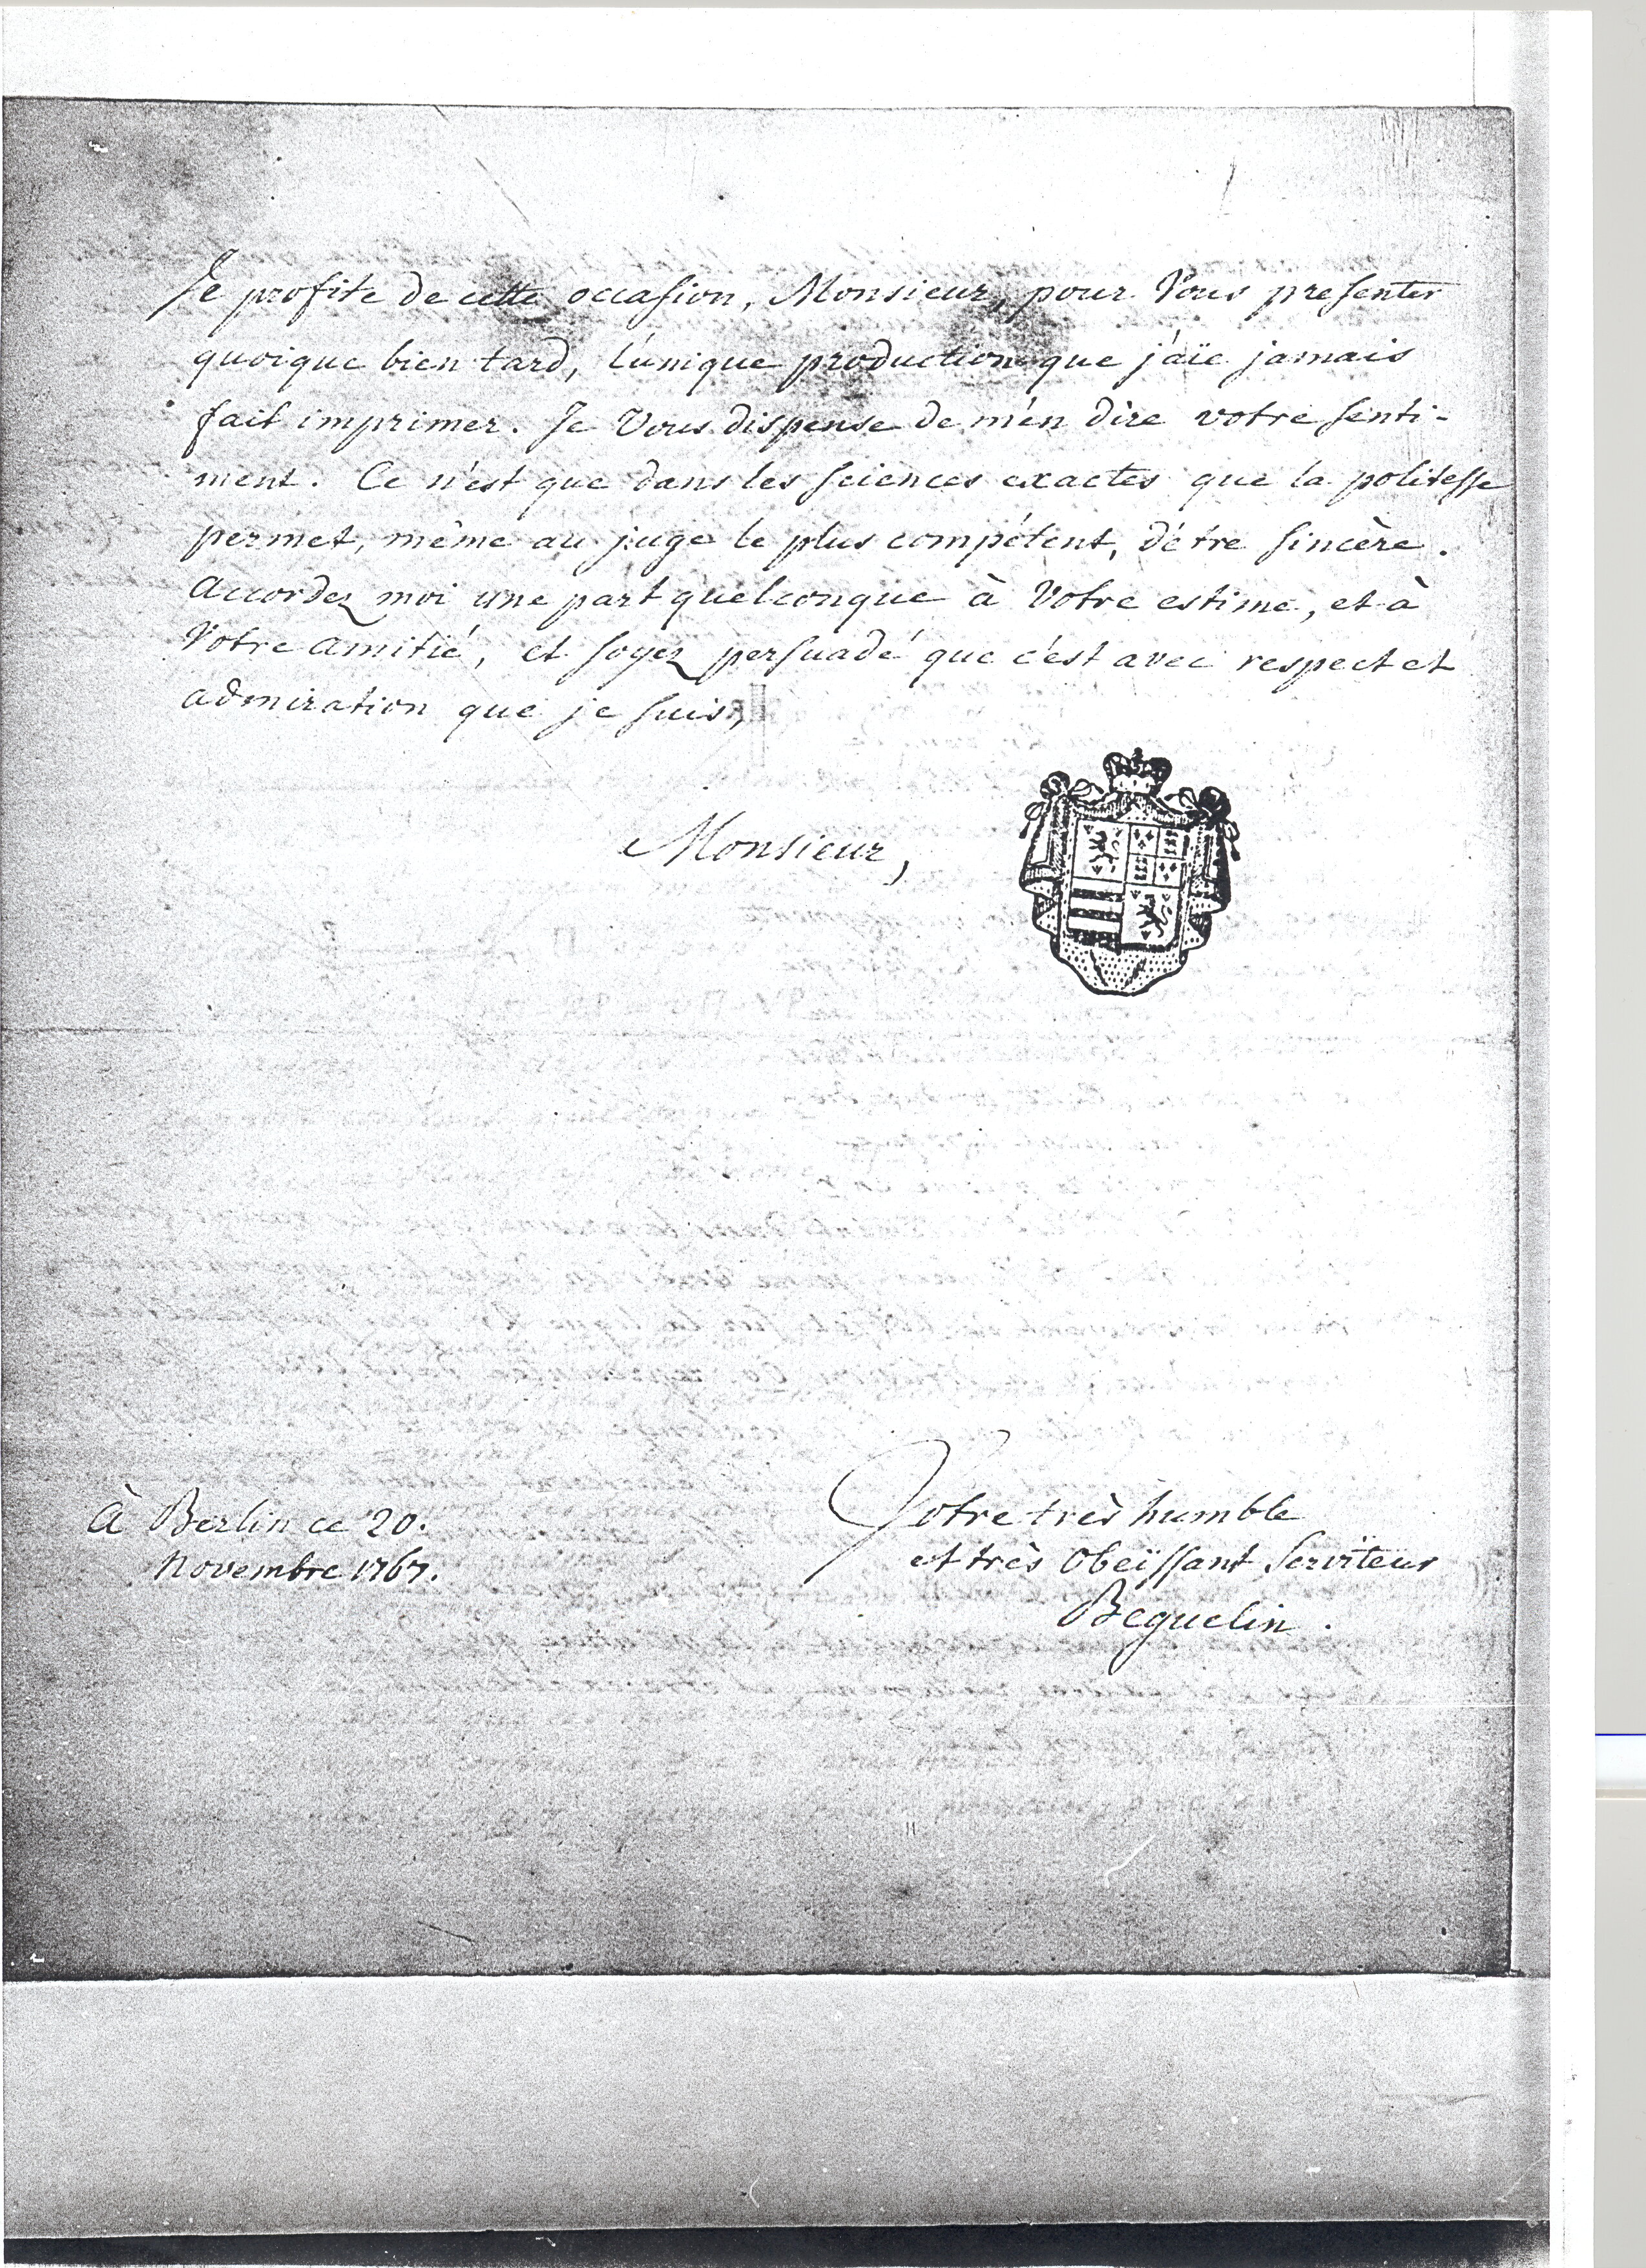 Je profite de cette occasion, Monsieur, pour Vous presenter
quoique bien tard, l'unique production que j'aïe jamais
fait imprimer. Je Vous dispense de m'en dire votre senti-
ment. Ce n'est que dans les sciences exactes que la politesse
permet, même au juge le plus compétent, d'étre sincère.
Accordez moi une part quelconque à Votre estime, et à
Votre amitié, et soyez persuadé que c'est avec respect et
admiration que je suis,
Monsieur,
Votre très humble
et très obeïssant Serviteur
Beguelin.
À Berlin ce 20.
Novembre 1767.